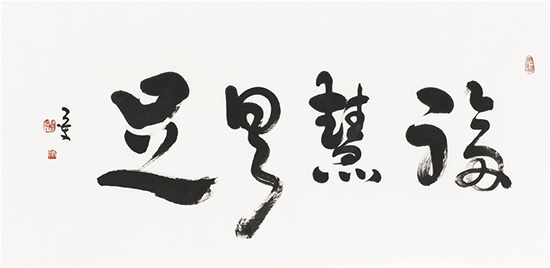 福慧具足